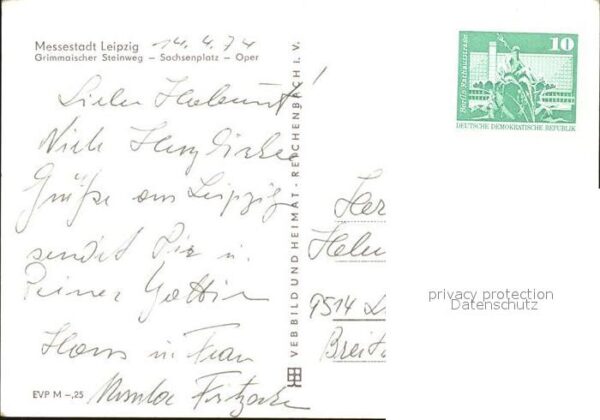 Messestadt Leipzig 14.4.74
Grimmaischer Steinweg – Sachsenplatz – Oper
Lieber Helmut!
Viele Herzliche
Grüße aus Leipzig
sendet Dir u.
Deiner Gattin
Hans u. Frau
VEB BILD UND HEIMAT · REICHENBACH I. V.
EVP M –,25
10
Berlin, Rathausstraße
DEUTSCHE DEMOKRATISCHE REPUBLIK
Her
Helm
9514
Breit
privacy protection
Datenschutz